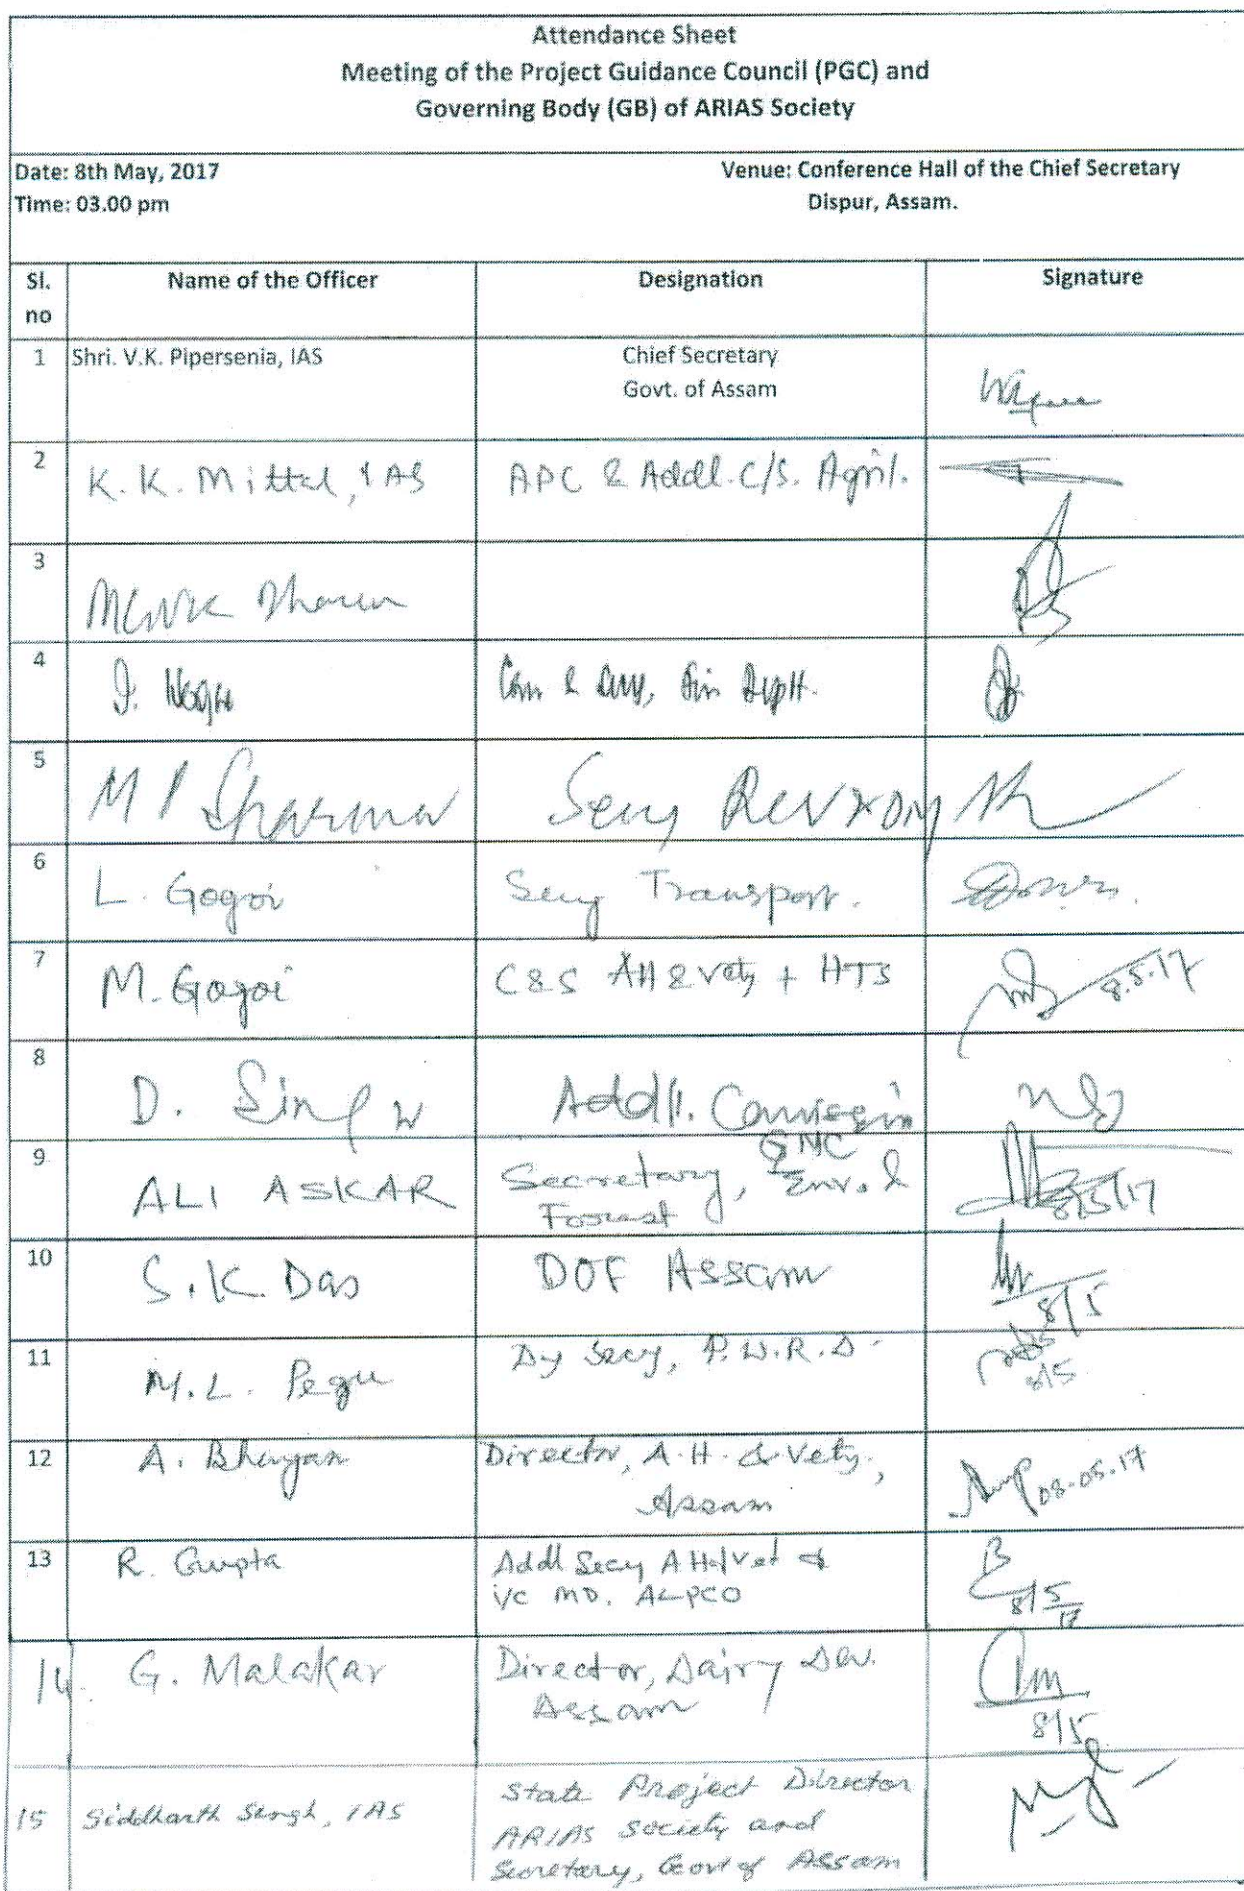 Attendance Sheet
Meeting of the Project Guidance Council (PGC) and
Governing Body (GB) of ARIAS Society
Date: 8th May, 2017
Venue: Conference Hall of the Chief Secretary
Time: 03.00 pm
Dispur, Assam.
Sl. no
Name of the Officer
Designation
Signature
1
Shri. V.K. Pipersenia, IAS
Chief Secretary
Govt. of Assam
2
K. K. Mittal, IAS
APC & Addl. C/S. Agril.
3
4
Fin Deptt.
5
M P Sharma
Secy Rev & DM
6
L. Gogoi
Secy Transport.
7
M. Gogoi
C&S AH & Vety + HTS
8.5.17
8
D. Singh
Addl.
GMC
9
ALI ASKAR
Secretary, Env. &
Forest
8/5/17
10
S. K. Das
DOF Assam
8/5
11
M. L. Pegu
Dy Secy, P.W.R.D.
8/5
12
A. Bhuyan
Director, A.H. & Vety.,
Assam
08.05.17
13
R. Gupta
Addl Secy AH/Vet &
i/c MD. ALPCO
8/5/17
14.
G. Malakar
Director, Dairy Dev.
Assam
8/5
15
Siddharth Singh, IAS
State Project Director
ARIAS Society and
Secretary, Govt of Assam